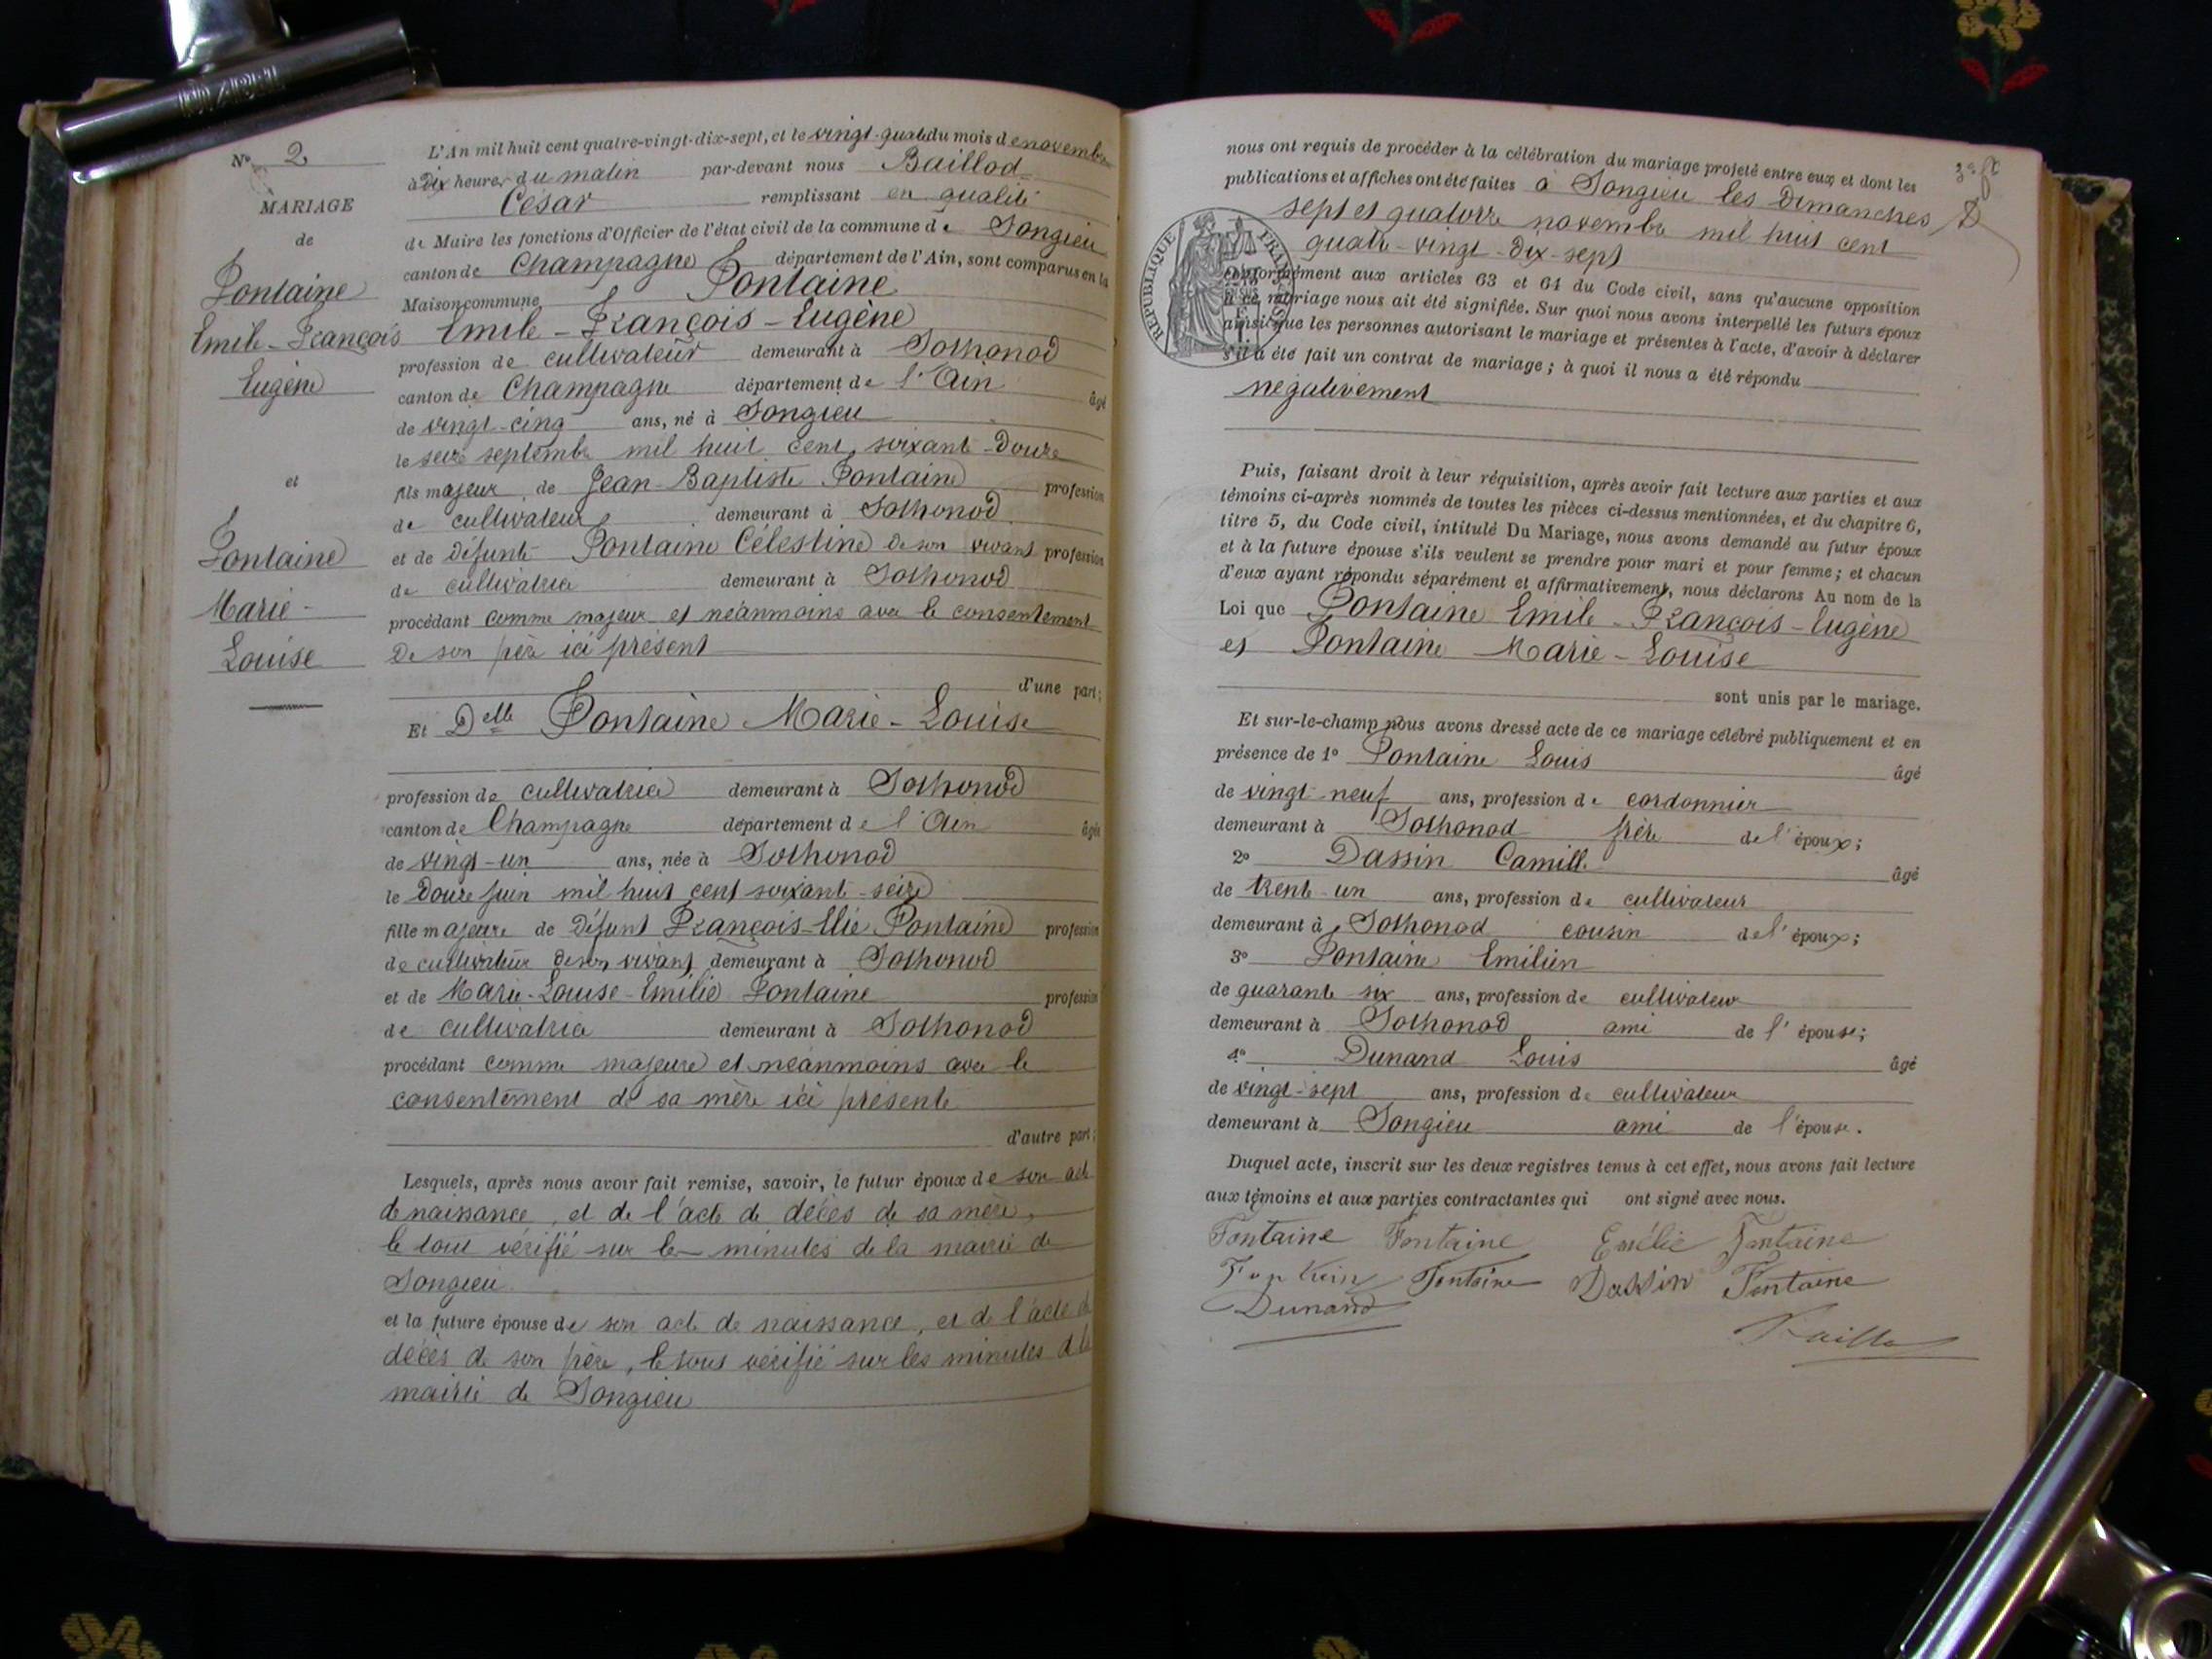 N° 2
MARIAGE
de
Fontaine
Emile-François
Eugène
et
Fontaine
Marie-
Louise
L'An mil huit cent quatre-vingt-dix-sept, et le vingt-quatre du mois de novembre
à Dix heures du matin par-devant nous Baillod
César remplissant en qualité
de Maire les fonctions d'Officier de l'état civil de la commune de Songieu
canton de Champagne département de l'Ain, sont comparus en la
Maison commune Fontaine
Emile-François-Eugène
profession de cultivateur demeurant à Sothonod
canton de Champagne département de l'Ain âgé
de vingt-cinq ans, né à Songieu
le seize septembre mil huit cent soixante-Douze
fils majeur de Jean-Baptiste Fontaine profession
de cultivateur demeurant à Sothonod
et de défunte Fontaine Célestine de son vivant profession
de cultivatrice demeurant à Sothonod
procédant comme majeur et néanmoins avec le consentement
De son père ici présent
d'une part;
Et Delle Fontaine Marie-Louise
profession de cultivatrice demeurant à Sothonod
canton de Champagne département de l'Ain âgée
de vingt-un ans, née à Sothonod
le Douze juin mil huit cent soixante-seize
fille majeure de Défunt François-Elie Fontaine profession
de cultivateur de son vivant demeurant à Sothonod
et de Marie-Louise-Emilie Fontaine profession
de cultivatrice demeurant à Sothonod
procédant comme majeure et néanmoins avec le
consentement de sa mère ici présente
d'autre part;
Lesquels, après nous avoir fait remise, savoir, le futur époux de son acte
de naissance, et de l'acte de décès de sa mère,
le tout vérifié sur les minutes de la mairie de
Songieu
et la future épouse de son acte de naissance, et de l'acte de
décès de son père, le tout vérifié sur les minutes de la
mairie de Songieu
nous ont requis de procéder à la célébration du mariage projeté entre eux et dont les
publications et affiches ont été faites à Songieu les Dimanches
sept et quatorze novembre mil huit cent
quatre-vingt-dix-sept
RÉPUBLIQUE FRANÇAISE
conformément aux articles 63 et 64 du Code civil, sans qu'aucune opposition
à ce mariage nous ait été signifiée. Sur quoi nous avons interpellé les futurs époux
ainsi que les personnes autorisant le mariage et présentes à l'acte, d'avoir à déclarer
s'il a été fait un contrat de mariage; à quoi il nous a été répondu
négativement
Puis, faisant droit à leur réquisition, après avoir fait lecture aux parties et aux
témoins ci-après nommés de toutes les pièces ci-dessus mentionnées, et du chapitre 6,
titre 5, du Code civil, intitulé Du Mariage, nous avons demandé au futur époux
et à la future épouse s'ils veulent se prendre pour mari et pour femme; et chacun
d'eux ayant répondu séparément et affirmativement, nous déclarons Au nom de la
Loi que Fontaine Emile-François-Eugène
et Fontaine Marie-Louise
sont unis par le mariage.
Et sur-le-champ nous avons dressé acte de ce mariage célébré publiquement et en
présence de 1° Fontaine Louis âgé
de vingt-neuf ans, profession de cordonnier
demeurant à Sothonod frère de l'époux;
2° Dassin Camille âgé
de trente-un ans, profession de cultivateur
demeurant à Sothonod cousin de l'époux;
3° Fontaine Emilien
de quarante six ans, profession de cultivateur
demeurant à Sothonod ami de l'épouse;
4° Dunand Louis âgé
de vingt-sept ans, profession de cultivateur
demeurant à Songieu ami de l'épouse.
Duquel acte, inscrit sur les deux registres tenus à cet effet, nous avons fait lecture
aux témoins et aux parties contractantes qui ont signé avec nous.
Fontaine Fontaine Emélie Fontaine
Fontaine Dassin Fontaine
Dunand